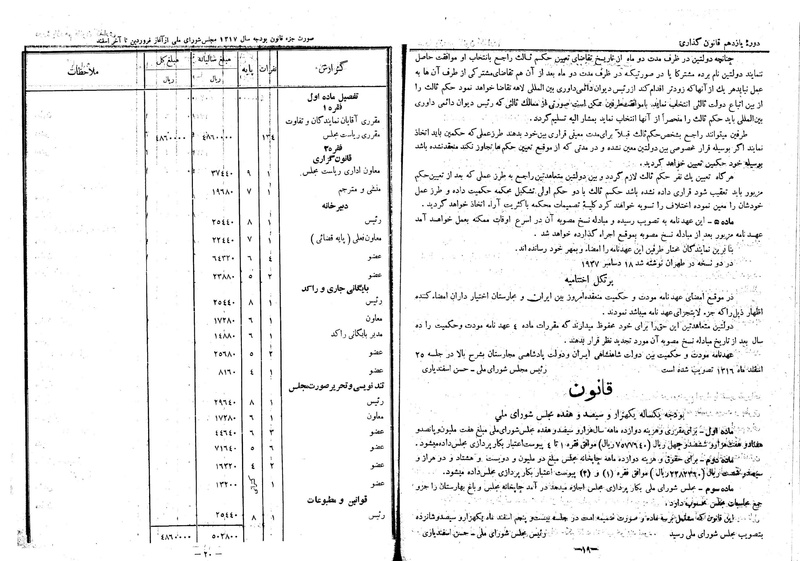 دوره یازدهم قانون گذاری
چنانچه دولتین در ظرف مدت دو ماه از تاریخ تقاضای تعیین حکم ثالث راجع بانتخاب او موافقت حاصل
ننمایند دولتین نام برده مشترکا یا در صورتیکه در ظرف مدت دو ماه بعد از آن هم تقاضای مشترکی از طرف آن ها به
عمل نیاید هر یک از آنها که زودتر اقدام کند از رئیس دیوان دائمی داوری بین المللی لاهه تقاضا خواهد نمود حکم ثالث را
از بین اتباع دولت ثالثی انتخاب نماید. با موافقت طرفین ممکن است صورتی از ممالک ثالثی که رئیس دیوان دائمی داوری
بین‌المللی باید حکم ثالث را منحصراً از آنها انتخاب نماید بمشار الیه تسلیم گردد.
طرفین میتوانند راجع بشخص حکم ثالث قبلاً برای مدت معینی قراری بین خود بدهند طرز عملی که حکمین باید اتخاذ
نمایند اگر بوسیله قرار خصوصی بین دولتین معین نشده و در مدتی که از موقع تعیین حکم ها تجاوز نکند منعقد نشده باشد
بوسیله خود حکمین تعیین خواهد گردید.
هر گاه تعیین یک نفر حکم ثالث لازم گردد و بین دولتین متعاهدتین راجع به طرز عملی که بعد از تعیین حکم
مزبور باید تعقیب شود قراری داده نشده باشد حکم ثالث با دو حکم اولی تشکیل محکمه حکمیت داده و طرز عمل
خودشان را معین نموده اختلاف را تسویه خواهند کرد کلیهٔ تصمیمات محکمه باکثریت آراء اتخاذ خواهد گردید.
ماده ۵ - این عهدنامه به تصویب رسیده و مبادله نسخ مصوبه آن در اسرع اوقات ممکنه بعمل خواهد آمد
عهد نامه مزبور بعد از مبادله نسخ مصوبه بموقع اجراء گذارده خواهد شد.
بنا بر این نمایندگان مختار طرفین این عهدنامه را امضاء و بمهر خود رسانده اند.
در دو نسخه در طهران نوشته شد ۱۸ دسامبر ۱۹۳۷
پرتکل اختتامیه
در موقع امضای عهد نامه مودت و حکمیت منعقده امروز بین ایران و مجارستان اختیار داران امضاء کننده
اظهار ذیل را که جزء لایتجزای عهد نامه میباشد نمودند.
دولتین متعاهدتین این حق را برای خود محفوظ میدارند که مقررات ماده ۴ عهد نامه مودت و حکمیت را ده
سال بعد از تاریخ مبادله نسخ مصوبه آن مورد تجدید نظر قرار بدهند.
عهدنامه مودت و حکمیت بین دولت شاهنشاهی ایران و دولت پادشاهی مجارستان بشرح بالا در جلسه ۲۵
اسفند ماه ۱۳۱۶ تصویب شده است رئیس مجلس شورای ملی - حسن اسفندیاری
قانون
بودجه یکساله یکهزار و سیصد و هفده مجلس شورای ملی
ماده اول - برای مقرری و هزینه دوازده ماهه سال هزار و سیصد و هفده مجلس شورای ملی مبلغ هفت ملیون و پانصدو
هفتاد و هفت هزار و ششصد و چهل ریال (۷۵۷۷۶۴۰ ریال) موافق فقره ۱ تا ۴ پیوست اعتبار بکار پردازی مجلس داده میشود.
ماده دوم - برای حقوق و هزینه دوازده ماهه چاپخانه مجلس مبلغ دو ملیون و دویست و هشتاد و دو هزار و
سیصد و شصت ریال (۲۲۸۲۳۶۰ ریال) موافق فقره (۱) و (۲) پیوست اعتبار بکار پردازی مجلس داده میشود.
ماده سوم - مجلس شورای ملی بکار پردازی مجلس اجازه میدهد در آمد چاپخانه مجلس و باغ بهارستان را جزو
جمع محاسبات مجلس محسوب دارد.
این قانون که مشتمل بر سه ماده و صورت ضمیمه است در جلسه بیست و پنجم اسفند ماه یکهزار و سیصد و شانزده
بتصویب مجلس شورای ملی رسید رئیس مجلس شورای ملی - حسن اسفندیاری
-۱۹-
صورت جزء قانون بودجه سال ۱۳۱۷ مجلس شورای ملی از آغاز فروردین تا آخر اسفند
گزارش نفرات پایه مبلغ سالیانه ریال مبلغ کل ریال ملاحظات
تفصیل ماده اول
فقره ۱
مقرری آقایان نمایندگان و تفاوت
مقرری ریاست مجلس ۱۳۴ ۴۸۶۰۰۰۰ ۴۸۶۰۰۰۰
فقره ۲
قانون گزاری
معاون اداری ریاست مجلس ۱ ۹ ۳۷۴۴۰
منشی و مترجم ۱ ۷ ۱۹۶۸۰
دبیرخانه
رئیس ۱ ۸ ۲۵۴۴۰
معاون فعلی (پایه قضائی) ۱ ۷ ۲۲۴۴۰
عضو ۴ ۶ ۶۴۳۲۰
عضو ۲ ۵ ۲۳۸۸۰
بایگانی جاری و راکد
رئیس ۱ ۸ ۲۵۴۴۰
معاون ۱ ۶ ۱۷۲۸۰
مدیر بایگانی راکد ۱ ۶ ۱۴۸۸۰
عضو ۲ ۵ ۲۵۶۸۰
عضو ۱ ۴ ۸۱۶۰
تند نویسی و تحریر صورت مجلس
رئیس ۱ ۸ ۲۹۶۴۰
معاون ۱ ۶ ۱۷۲۸۰
عضو ۳ ۶ ۴۴۶۴۰
عضو ۶ ۵ ۷۱۶۴۰
عضو ۲ ۴ ۱۶۳۲۰
عضو ۱ ۱۳۲۰۰
قوانین و مطبوعات
رئیس ۱ ۸ ۲۵۴۴۰
۵۰۲۸۰۰ ۴۸۶۰۰۰۰
-۲۰-